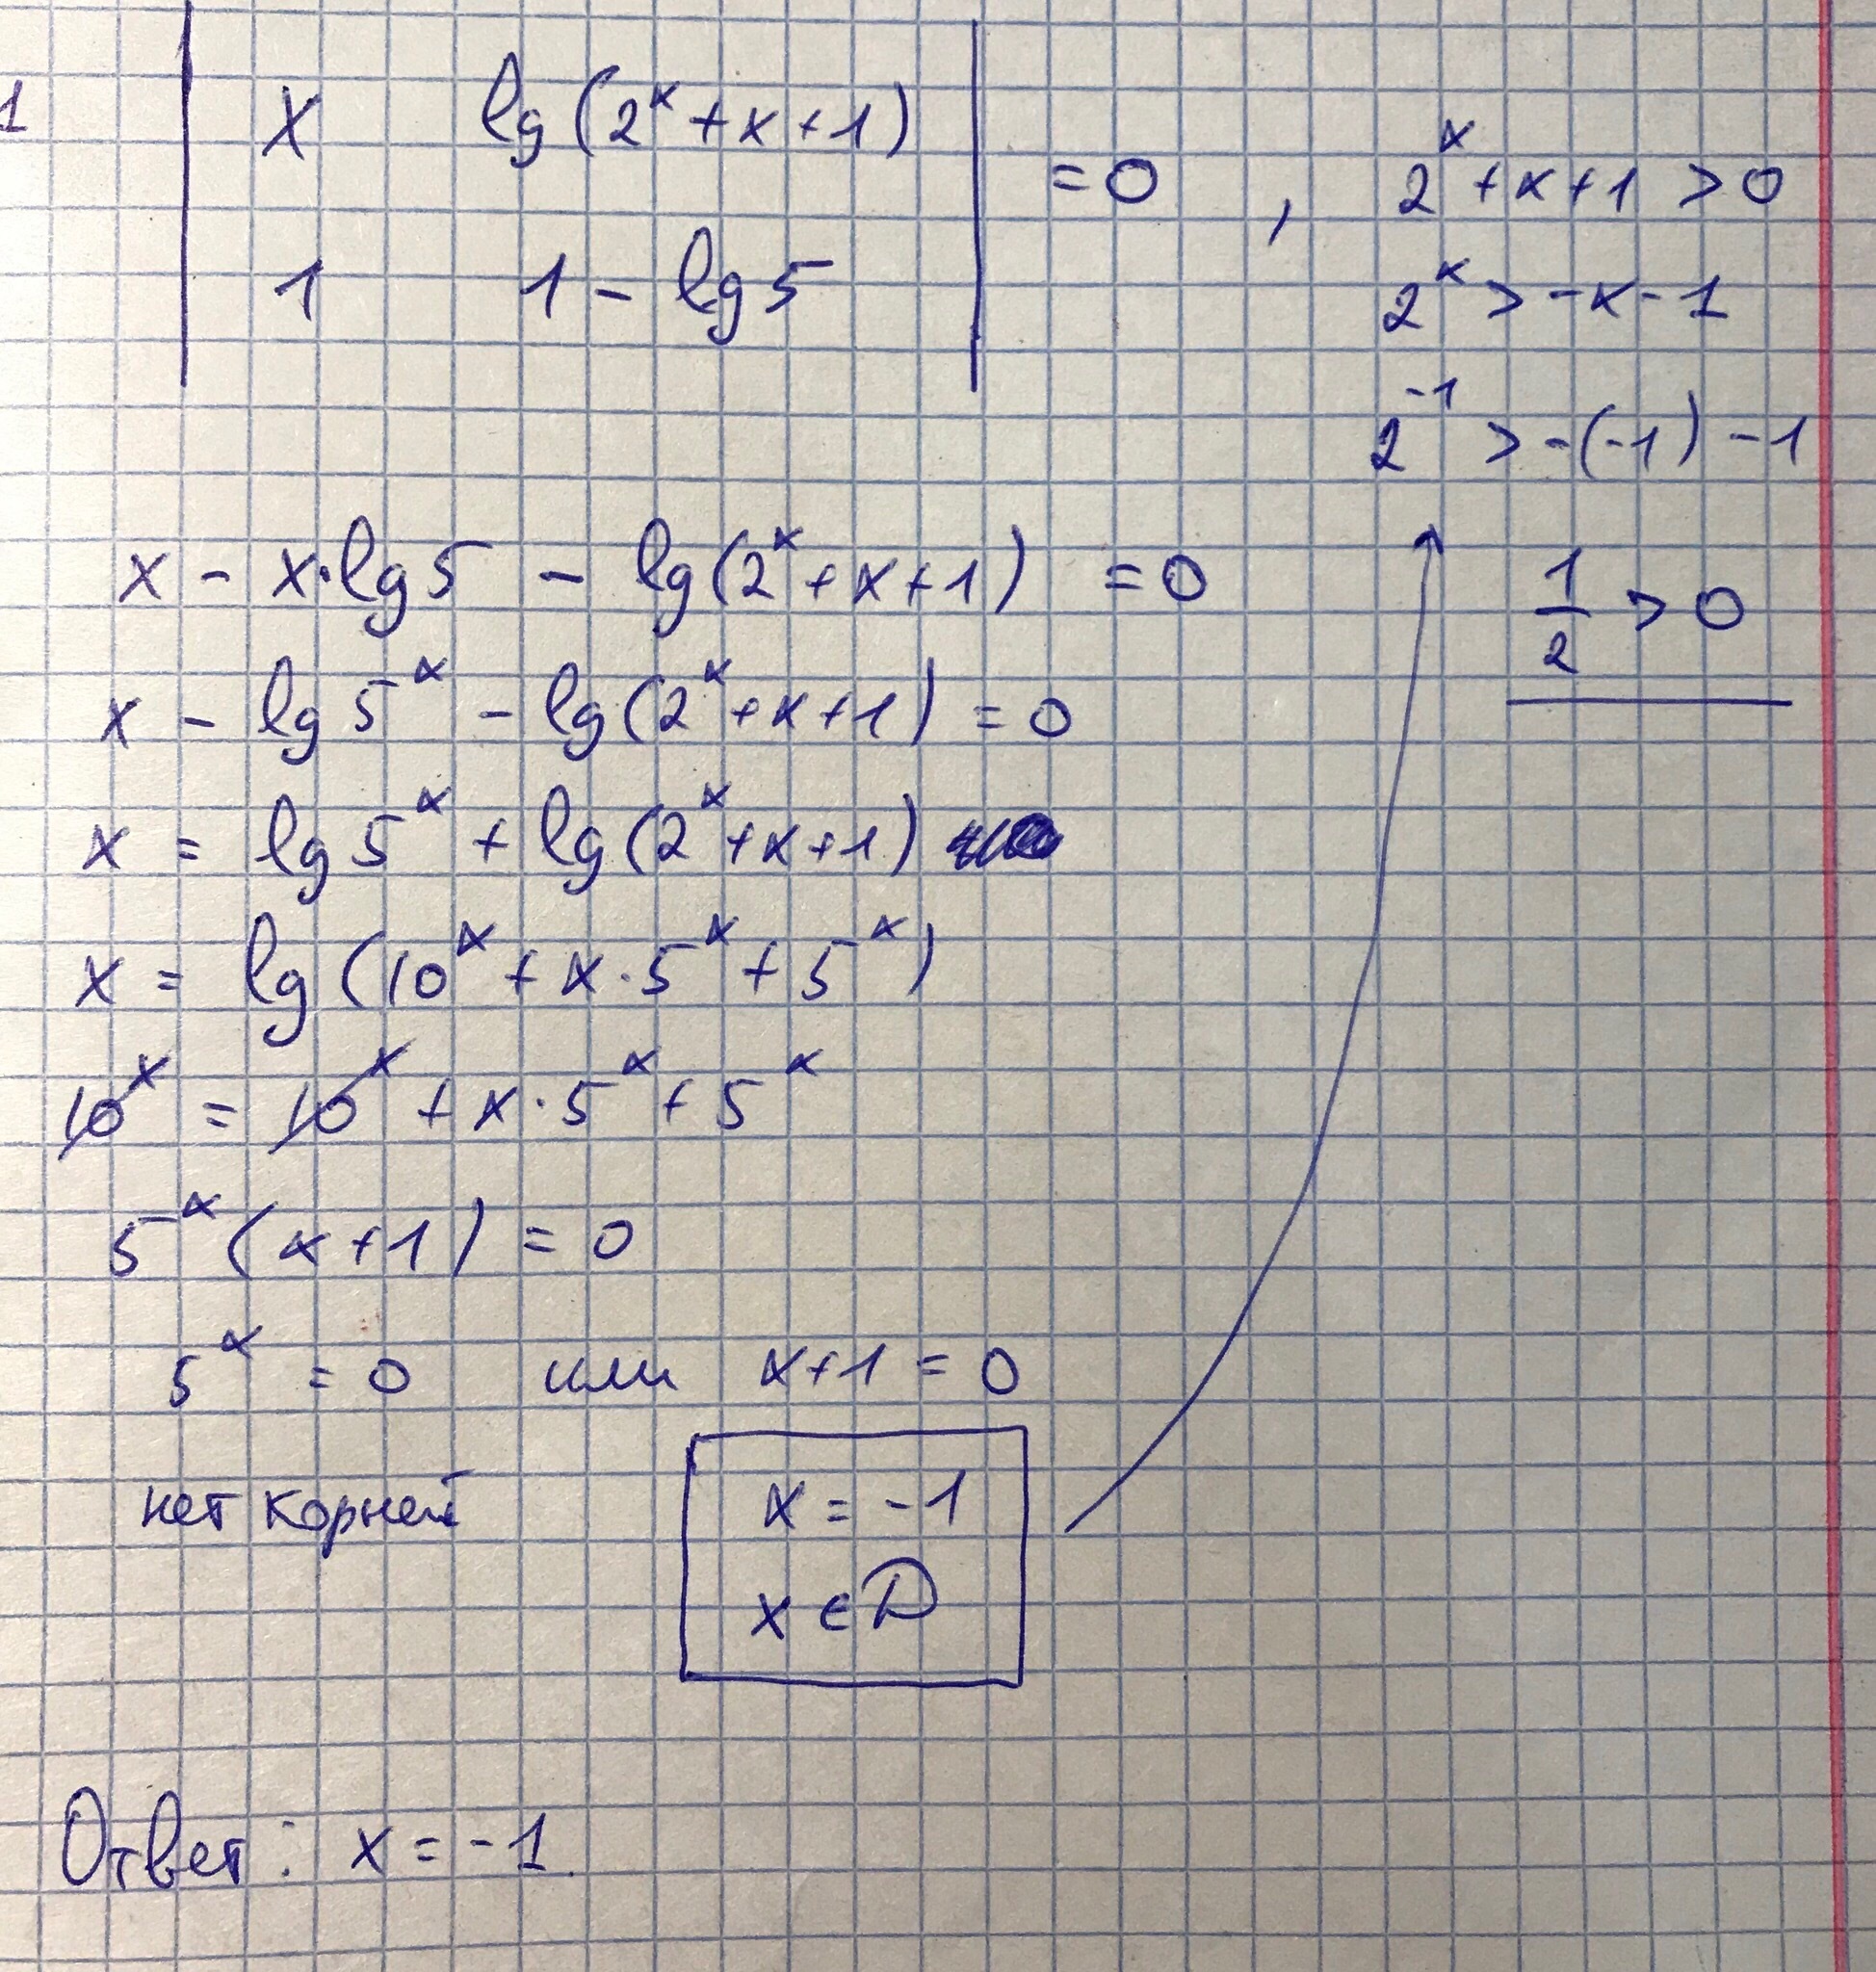 1
x lg(2^x + x + 1)
= 0 , 2^x + x + 1 > 0
1 1 - lg 5
2^x > -x - 1
2^-1 > -(-1) - 1
1/2 > 0
x - x·lg 5 - lg(2^x + x + 1) = 0
x - lg 5^x - lg(2^x + x + 1) = 0
x = lg 5^x + lg(2^x + x + 1)
x = lg(10^x + x·5^x + 5^x)
10^x = 10^x + x·5^x + 5^x
5^x(x+1) = 0
5^x = 0 или x+1 = 0
нет корней x = -1
x ∈ D
Ответ: x = -1.